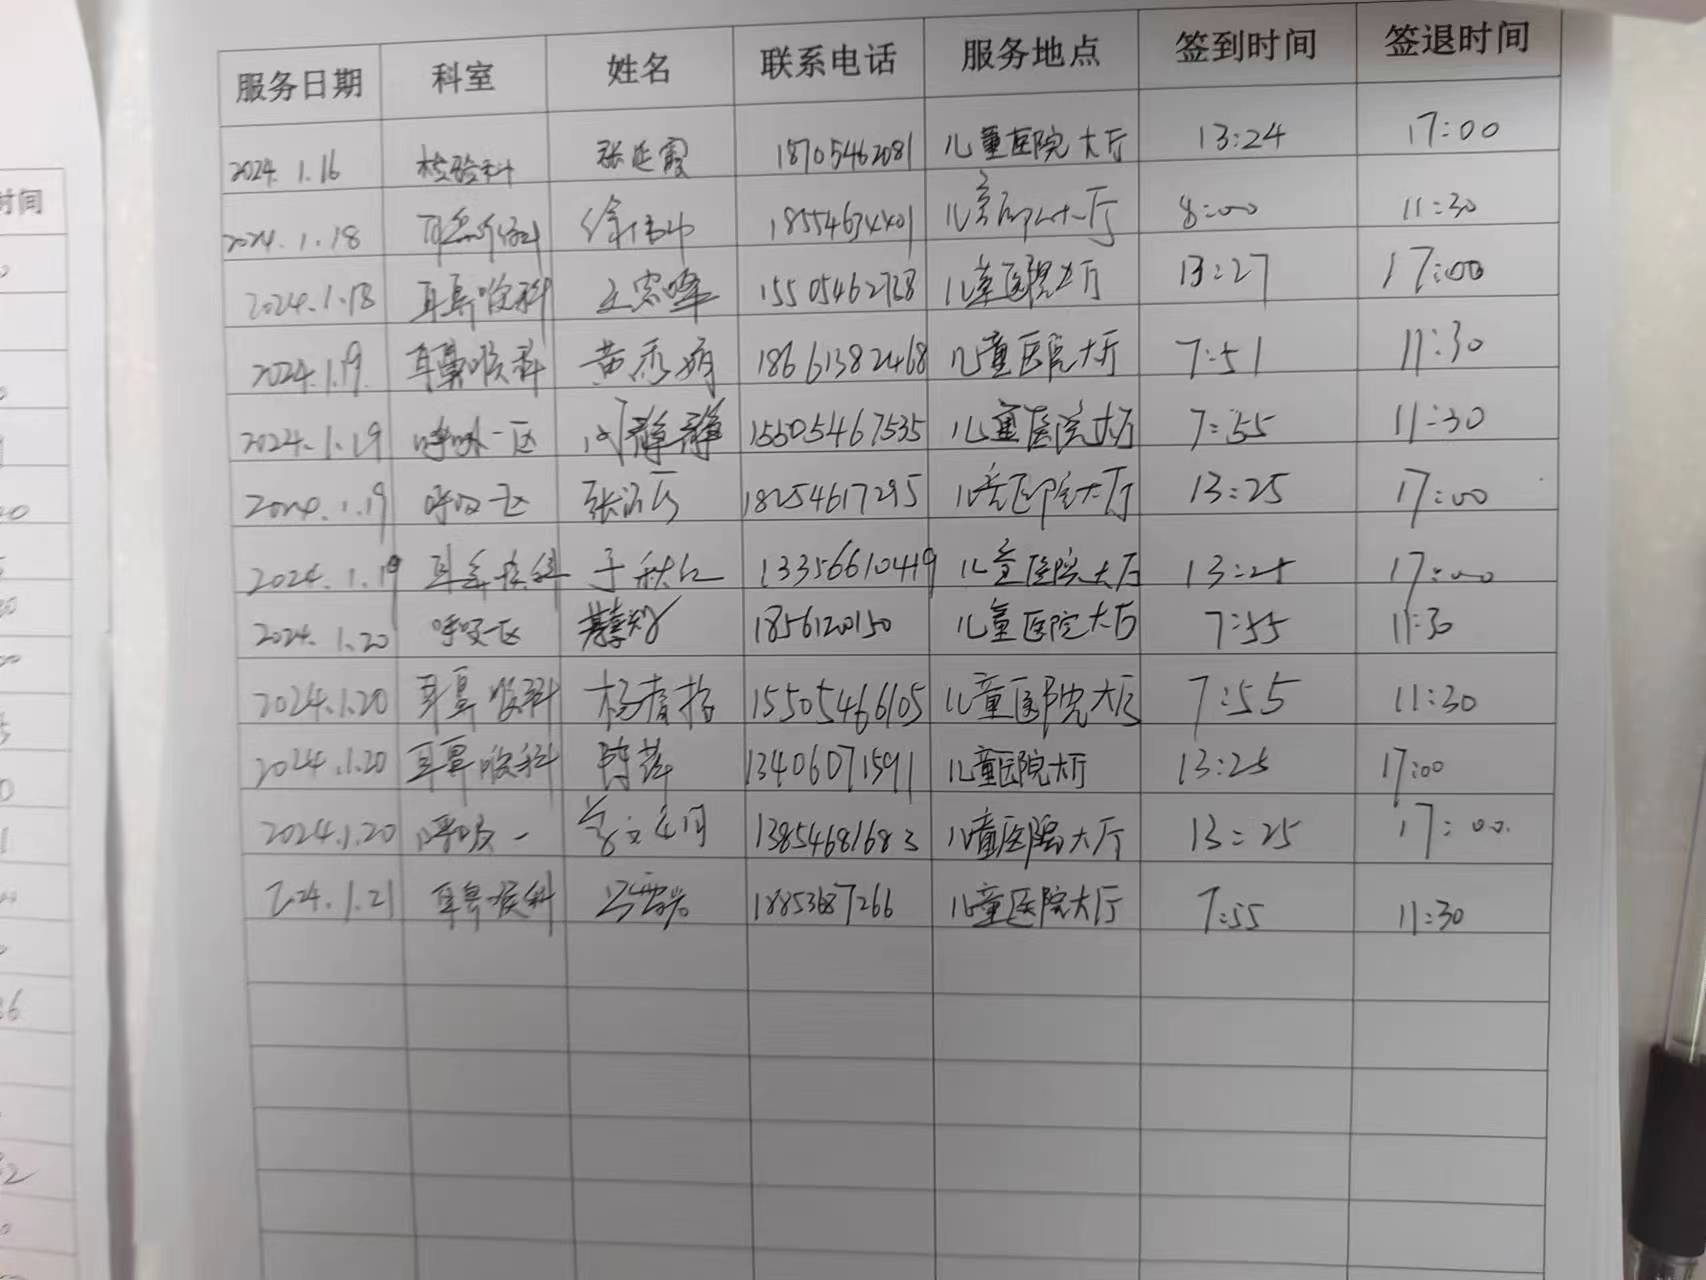 时间
服务日期 科室 姓名 联系电话 服务地点 签到时间 签退时间
2024.1.16 检验科 张延霞 18705462081 儿童医院大厅 13:24 17:00
2024.1.18 徐 大厅 8:00 11:30
2024.1.18 耳鼻喉科 王 峰 15505462728 儿童医院大厅 13:27 17:00
2024.1.19. 耳鼻喉科 黄秀娟 18661382468 儿童医院大厅 7:51 11:30
2024.1.19 呼吸一区 静静 15505467535 儿童医院大厅 7:55 11:30
2024.1.19 呼吸一区 张 18254617295 儿童医院大厅 13:25 17:00
2024.1.19 耳鼻喉科 于秋红 13356610419 儿童医院大厅 13:25 17:00
2024.1.20 呼吸一区 1856120150 儿童医院大厅 7:55 11:30
2024.1.20 耳鼻喉科 杨 15505466105 儿童医院大厅 7:55 11:30
2024.1.20 耳鼻喉科 陈萍 13406071591 儿童医院大厅 13:25 17:00
2024.1.20 呼吸一 文 13854681683 儿童医院大厅 13:25 17:00.
2024.1.21 耳鼻喉科 儿童医院大厅 7:55 11:30